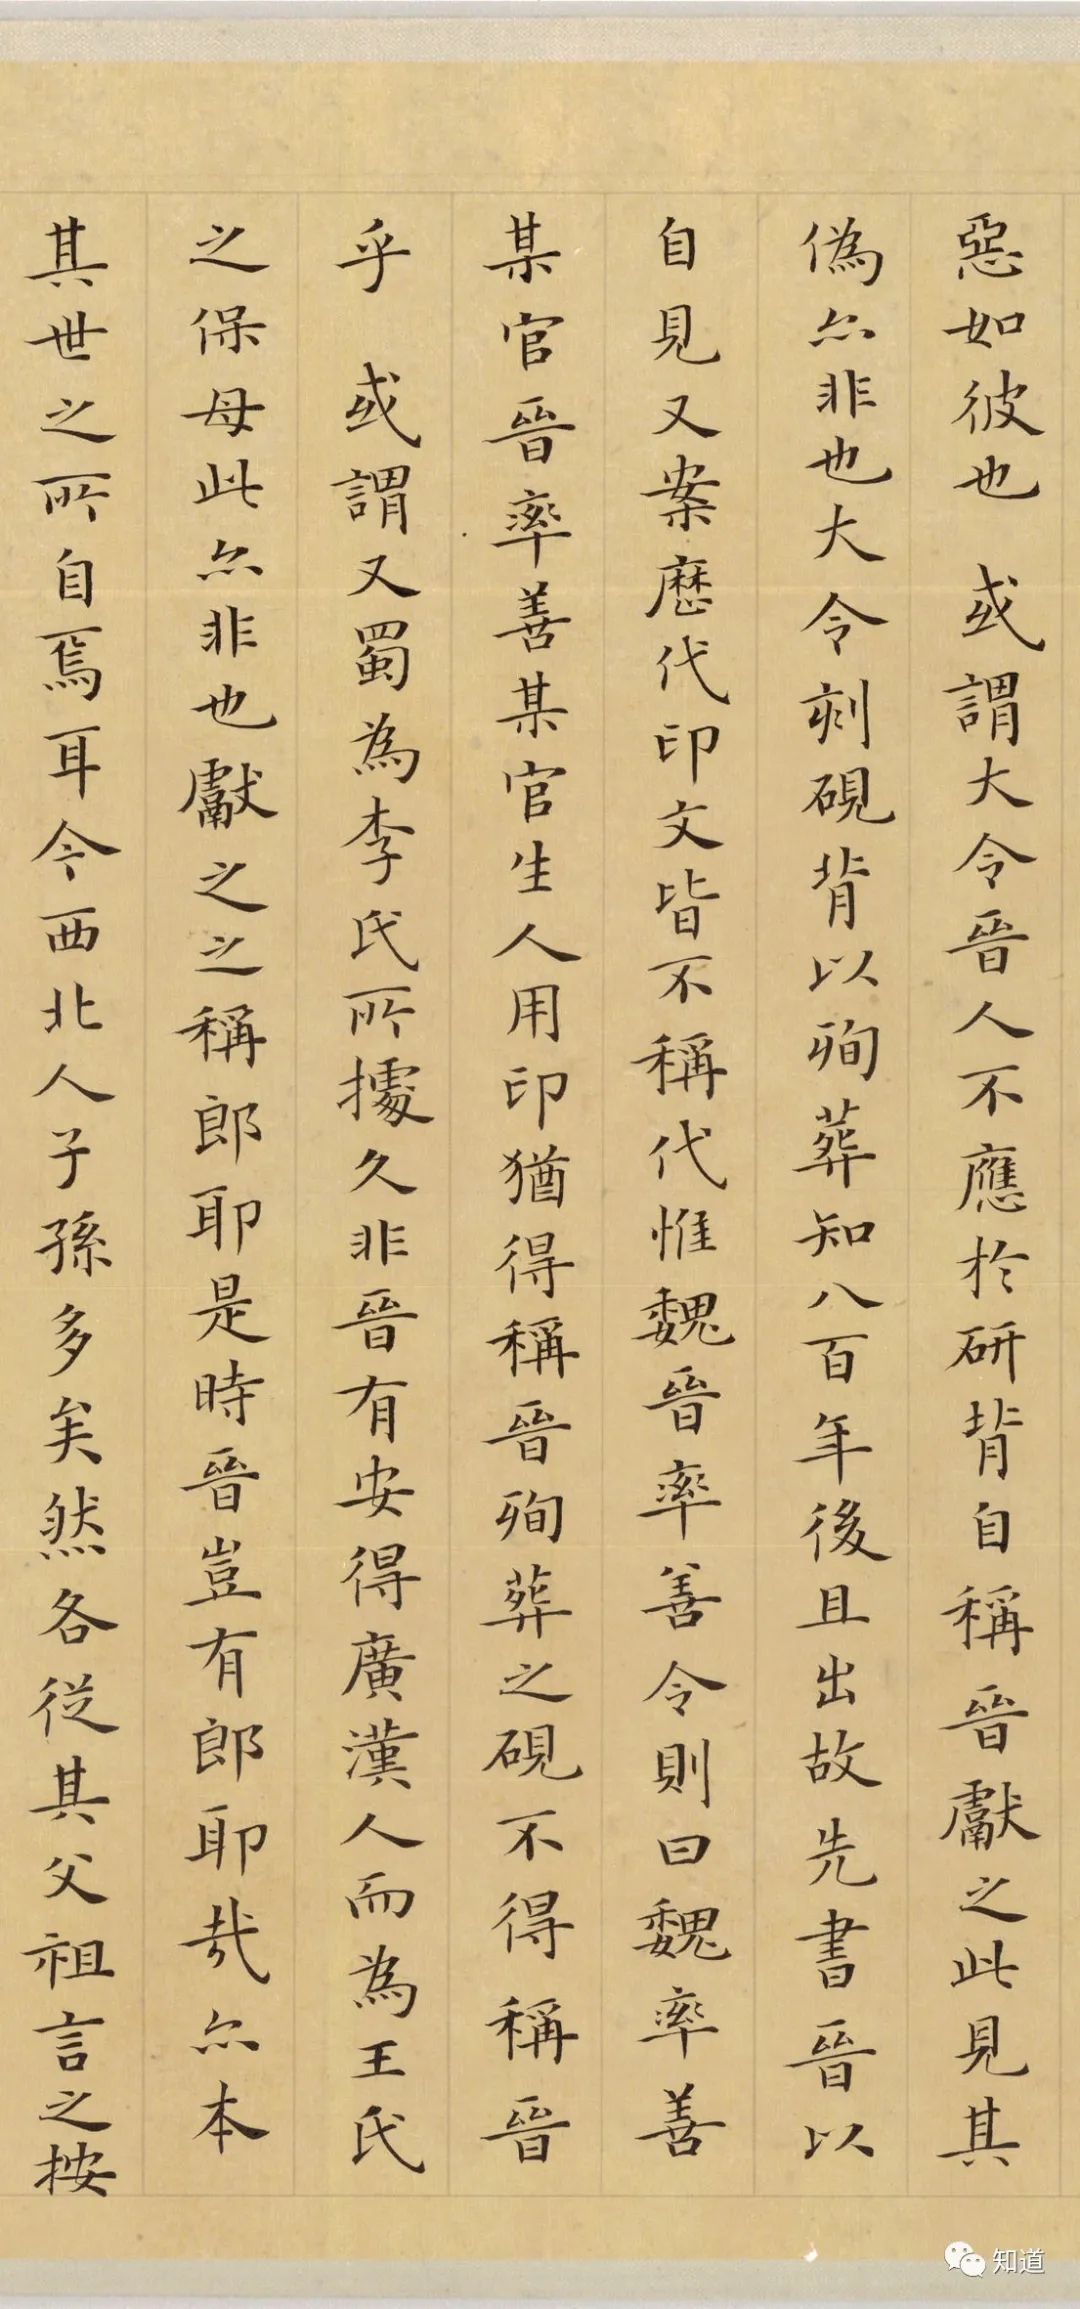 惡如彼也　或謂大令晉人不應於研背自稱晉獻之此見其
偽亦非也大令刻硯背以殉葬知八百年後且出故先書晉以
自見又案歷代印文皆不稱代惟魏晉率善令則曰魏率善
某官晉率善某官生人用印猶得稱晉殉葬之硯不得稱晉
乎　或謂又蜀為李氏所據久非晉有安得廣漢人而為王氏
之保母此亦非也獻之之稱郎耶是時晉豈有郎耶哉亦本
其世之所自焉耳今西北人子孫多矣然各從其父祖言之按
知道